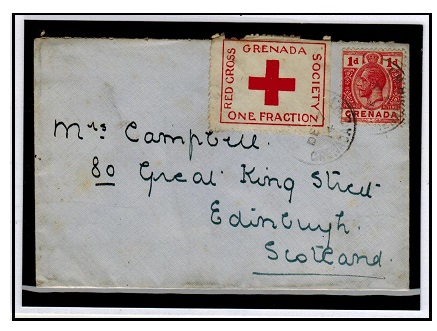 GRENADA
RED CROSS
SOCIETY
ONE FRACTION
1d 1d
GRENADA
Mrs Campbell.
80 Great King Street
Edinburgh.
Scotland.